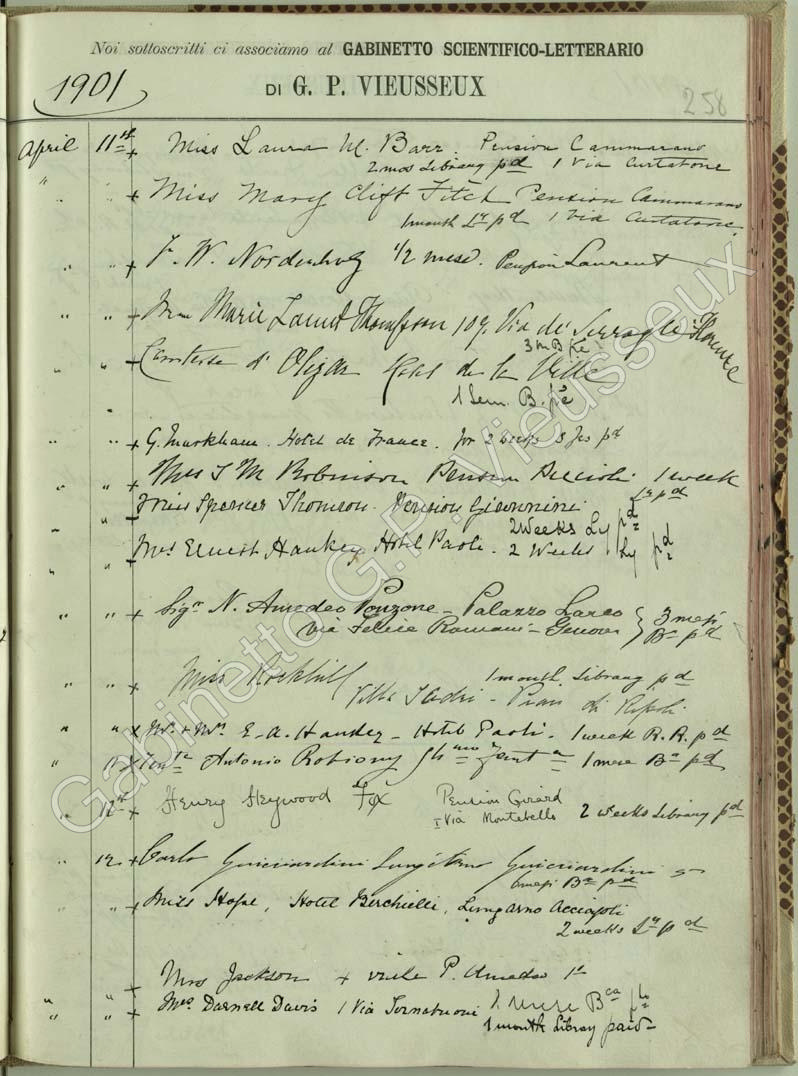 Noi sottoscritti ci associamo al GABINETTO SCIENTIFICO-LETTERARIO
DI G. P. VIEUSSEUX
1901
258
April 11th + Miss Laura M. Barr. Pension Cammarano
2 mos Library pd 1 Via Curtatone
" " + Miss Mary Clift Fitch Pension Cammarano
1 month Ly pd 1 Via Curtatone
" " + F. W. 1/2 mese. Pension Laurent
" " + Marie Thompson 109 Via de' Serragli Florence
3 m B
" " + Comtesse d' Olizar de la Ville
1 Sem. B.
" " + G. Markham. Hotel de France. for 2 weeks 3 frs pd
" " + Mrs Robinson Pension 1 week
Ly pd
" " Miss Spencer Thomson. Pension Giannini
2 Weeks Ly pd
" " Mrs Ernest Hankey Hotel Paoli. 2 Weeks Ly pd
" " + Sigr N. Amedeo Ponzone - Palazzo 3 mesi
Via Felice Romani - Genova Ba pd
" " + Miss Rockhill 1 month Library pd
Villa - Pian di Ripoli
" " x Mr + Mrs E. A. Hankey - Hotel Paoli - 1 week R. R. pd
" 11 x Antonio Robiony 1 mese Ba pd
" 12th + Henry Heywood Fox Pension Girard
1 Via Montebello 2 weeks Library pd
" 12 + Carlo Guicciardini Lungarno Guicciardini 5
6 mesi Ba pd
" " + Miss Hope, Hotel Berchielli, Lungarno Acciajoli
2 weeks Ly pd
+ Mrs Jackson + viale P. Amedeo 1
1 mese Bca
" " + Mrs Darnell Davis 1 Via Tornabuoni
1 month Library paid
Gabinetto G.P. Vieusseux